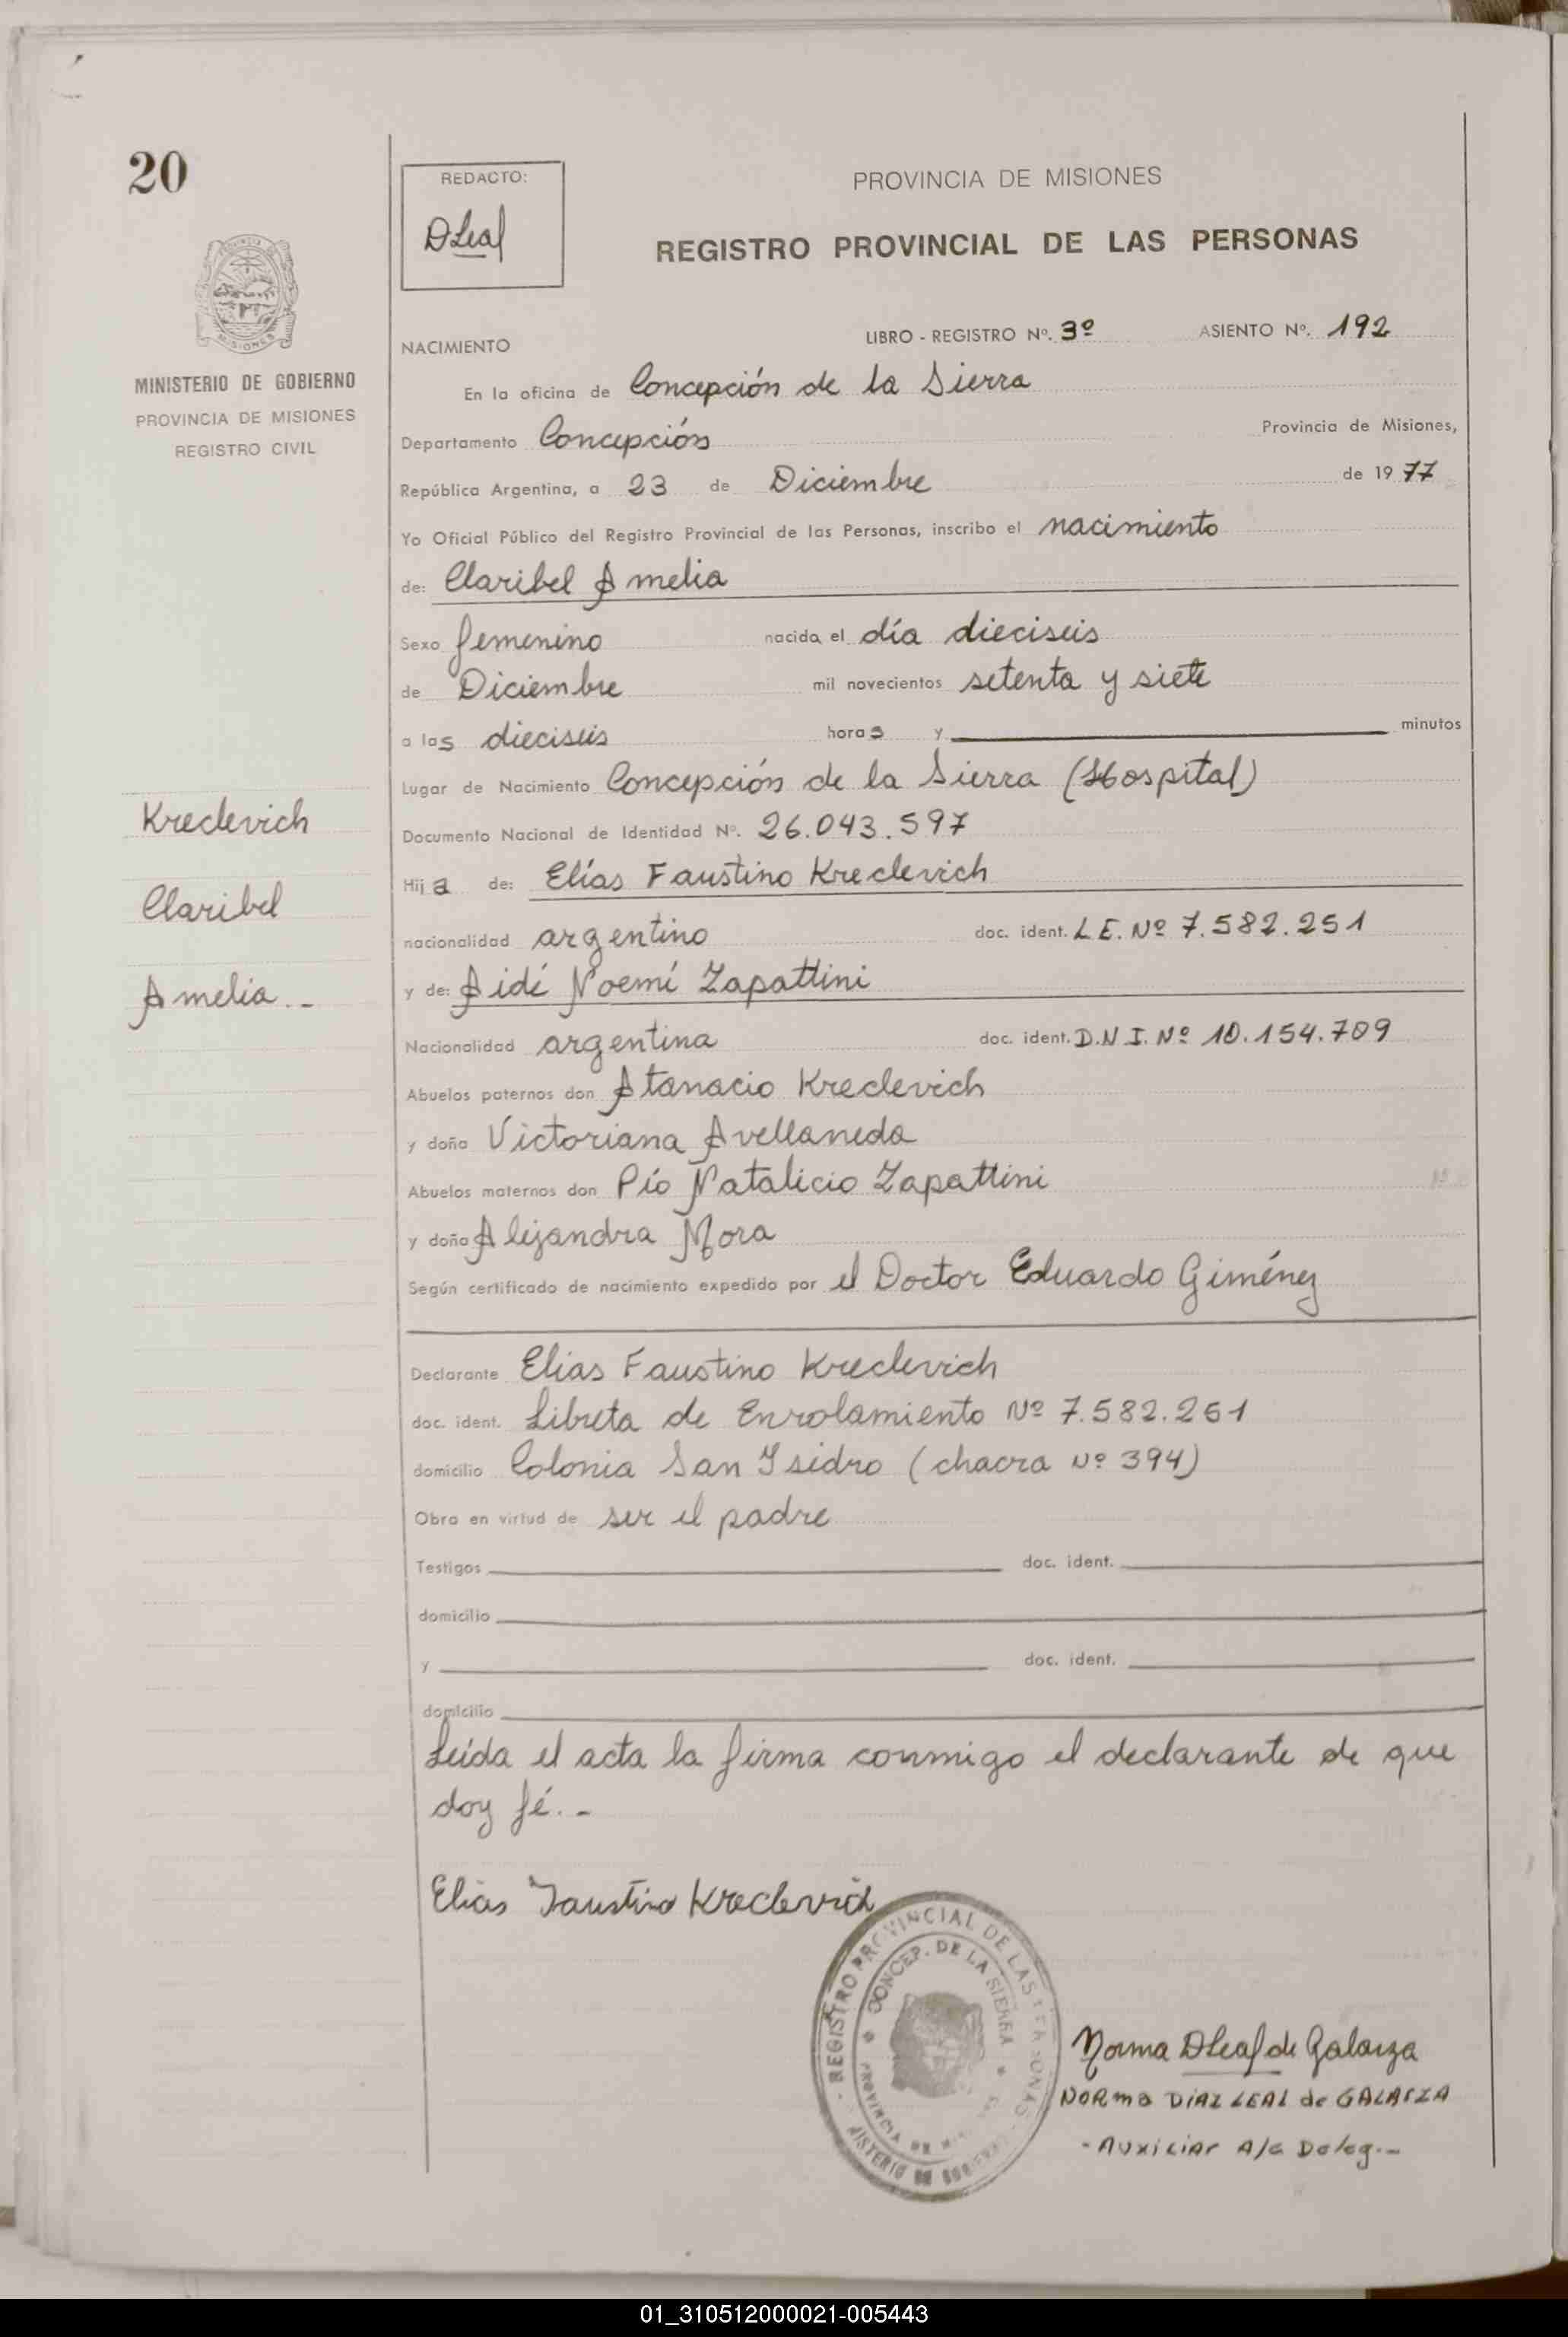 20
REDACTO:
DLeal
PROVINCIA DE MISIONES
REGISTRO PROVINCIAL DE LAS PERSONAS
MISIONES
MINISTERIO DE GOBIERNO
PROVINCIA DE MISIONES
REGISTRO CIVIL
NACIMIENTO LIBRO - REGISTRO Nº. 3º ASIENTO Nº. 192
En la oficina de Concepción de la Sierra
Departamento Concepción Provincia de Misiones,
República Argentina, a 23 de Diciembre de 1977
Yo Oficial Público del Registro Provincial de las Personas, inscribo el nacimiento
de: Claribel Amelia
Sexo femenino nacida el día dieciseis
de Diciembre mil novecientos setenta y siete
a las dieciseis horas y minutos
Lugar de Nacimiento Concepción de la Sierra (Hospital)
Documento Nacional de Identidad Nº. 26.043.597
Hija de: Elías Faustino Kreclevich
nacionalidad argentino doc. ident. L E. Nº 7.582.251
y de: Aidé Noemí Zapattini
Nacionalidad argentina doc. ident. D.N I. Nº 10.154.709
Abuelos paternos don Atanacio Kreclevich
y doña Victoriana Avellaneda
Abuelos maternos don Pío Natalicio Zapattini
y doña Alejandra Mora
Según certificado de nacimiento expedido por el Doctor Eduardo Giménez
Kreclevich
Claribel
Amelia.-
Declarante Elias Faustino Kreclevich
doc. ident. Libreta de Enrolamiento Nº 7.582.251
domicilio Colonia San Isidro (chacra Nº 394)
Obra en virtud de ser el padre
Testigos doc. ident.
domicilio
y doc. ident.
domicilio
Leída el acta la firma conmigo el declarante de que
doy fé.-
Elias Faustino Kreclevich
REGISTRO PROVINCIAL DE LAS PERSONAS
CONCEP. DE LA SIERRA
PROVINCIA DE
Norma DLeal de Galarza
NORMA DIAZ LEAL de GALARZA
- Auxiliar A/c Deleg.-
01_310512000021-005443